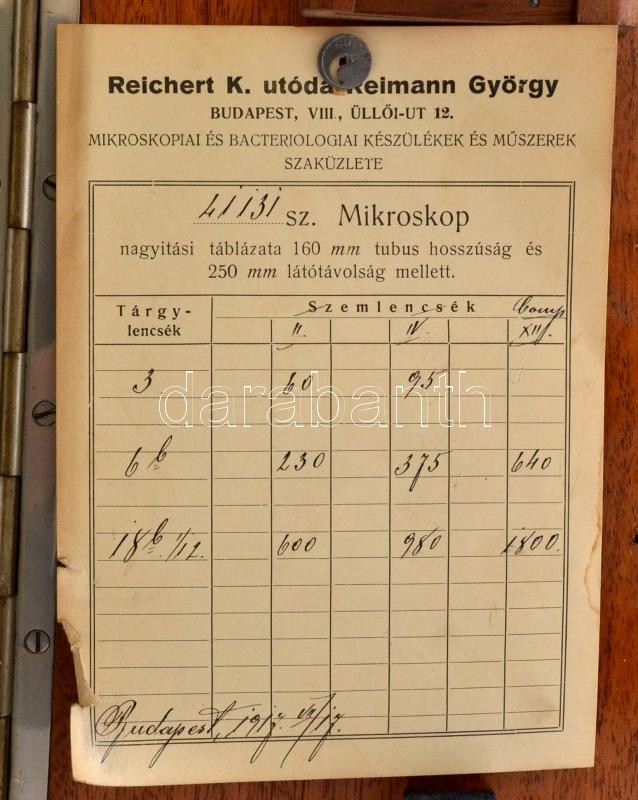 Reichert K. utóda Reimann György
BUDAPEST, VIII., ÜLLŐI-UT 12.
MIKROSKOPIAI ÉS BACTERIOLOGIAI KÉSZÜLÉKEK ÉS MŰSZEREK
SZAKÜZLETE
41131 sz. Mikroskop
nagyitási táblázata 160 mm tubus hosszúság és
250 mm látótávolság mellett.
Tárgy-
lencsék
Szemlencsék Comp
II. IV. XII.
3 60 95
darabanth
6b 230 375 640
18b. 1/12. 600 980 1800.
Budapest, 1917.